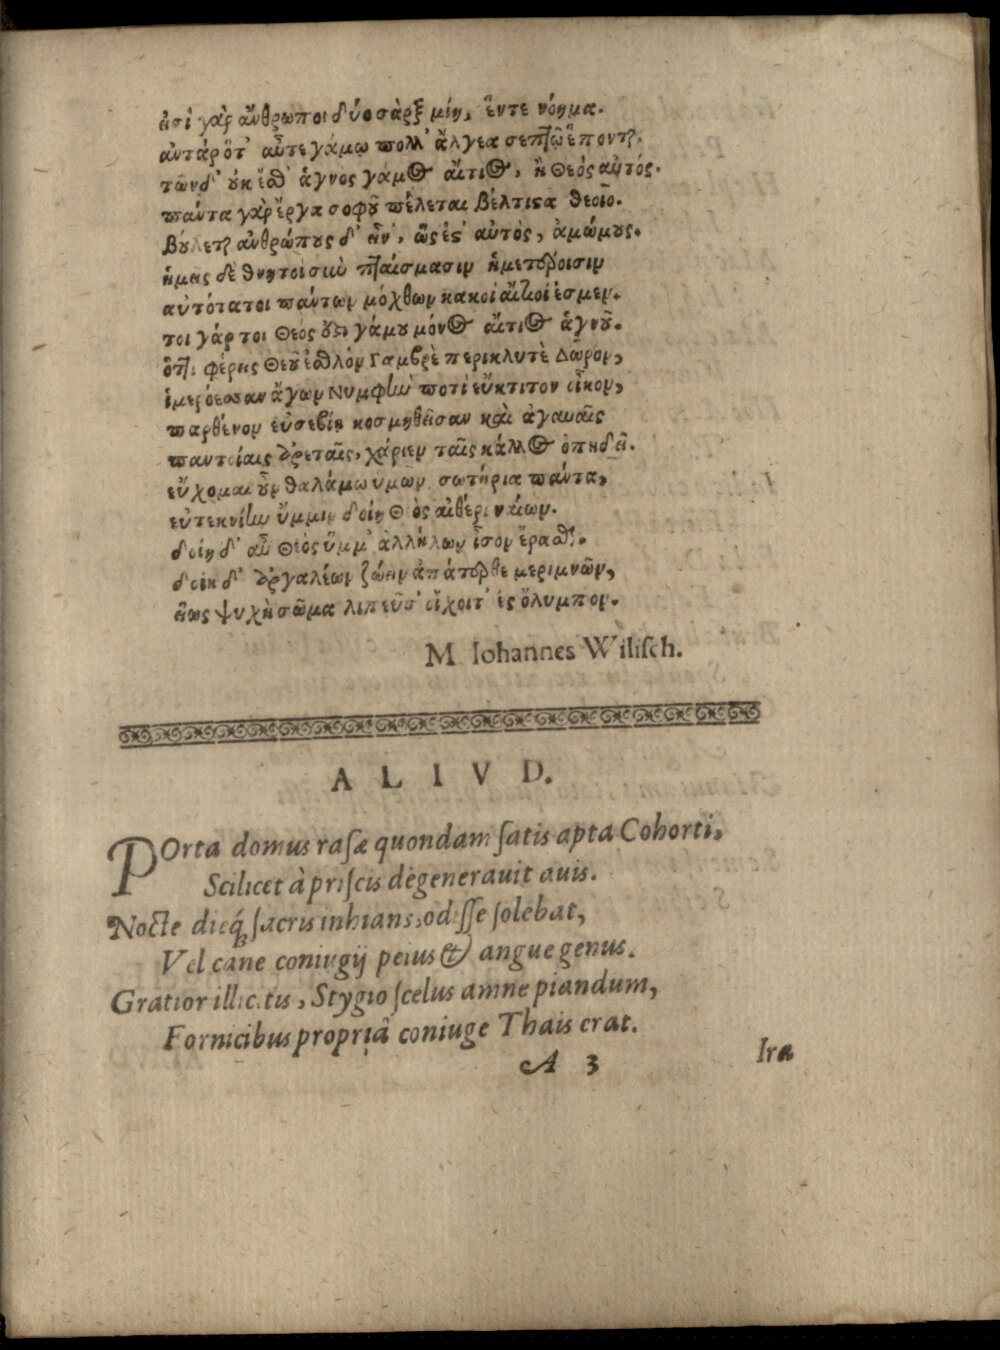 εἰσὶ γὰρ ἄνθρωποι δύο σὰρξ μίη, ἕντε νόημα.
ἀντάρ ὅτ' αὖτε γάμῳ πολλ' ἄλγεα σεπῆῷ ἕπονται.
τῶνδ' οὐκ ἔσθ' ἁγνος γάμος αἴτιος, ἢ Θεὸς αὐτός.
πάντα γὰρ ἔργα σοφοῦ πέλεται βέλτιστα θεοῖο.
βούλεται ἀνθρώπους δ' εἶν', ὥς ἐστ' αὐτὸς, ἀμώμους.
ἡμεῖς δὲ θνητοὶ σὺν πταίσμασιν ἡμετέροισιν
αὐτότατοι πάντων μόχθων κακοὶ αἴτιοί ἐσμεν.
τοι γάρ τοι Θεὸς οὗτι γάμου μόνος αἴτιος ἁγνοῦ.
ὅττι φέρεις Θεοῦ ἐσθλὸν Γαμβρὲ περικλυτὲ Δῶρον,
ἱμερόεσσαν ἄγων Νυμφὴν ποτὶ εὔκτιτον οἶκον,
παρθένον εὐσεβίῃ κοσμηθεῖσαν καὶ ἀγαυαῖς
παντοίαις ἀρεταῖς, χάριεν ταῖς κάλλος ὀπηδεῖ.
εὔχομαι οὖν θαλάμω ὑμῶν σωτήρια πάντα,
εὐτεκνίην ὔμμιν δοίη Θεὸς αἰθέρι ναίων.
δοίη δ' αὖ Θεὸς ὔμμ' ἀλλήλων ἶσον ἔρασθαι.
δοίη δ' ἀργαλέων ζώειν ἀπάτερθε μεριμνῶν,
ἕως ψυχὴ σῶμα λιπεῦσ' οἴχοιτ' ἐς ὄλυμπον.
M. Iohannes Wiliſch.
ALIVD.
POrta domus raſæ quondam ſatis apta Cohorti,
Scilicet à priſcis degeneravit avis.
Nocte dieq́; ſacris inhians, odiſſe ſolebat,
Vel cane coniugij peius & angue genus.
Gratior illicitis, Stygio ſcelus amne piandum,
Fornicibus propriâ coniuge Thais erat.
A 3
Iræ